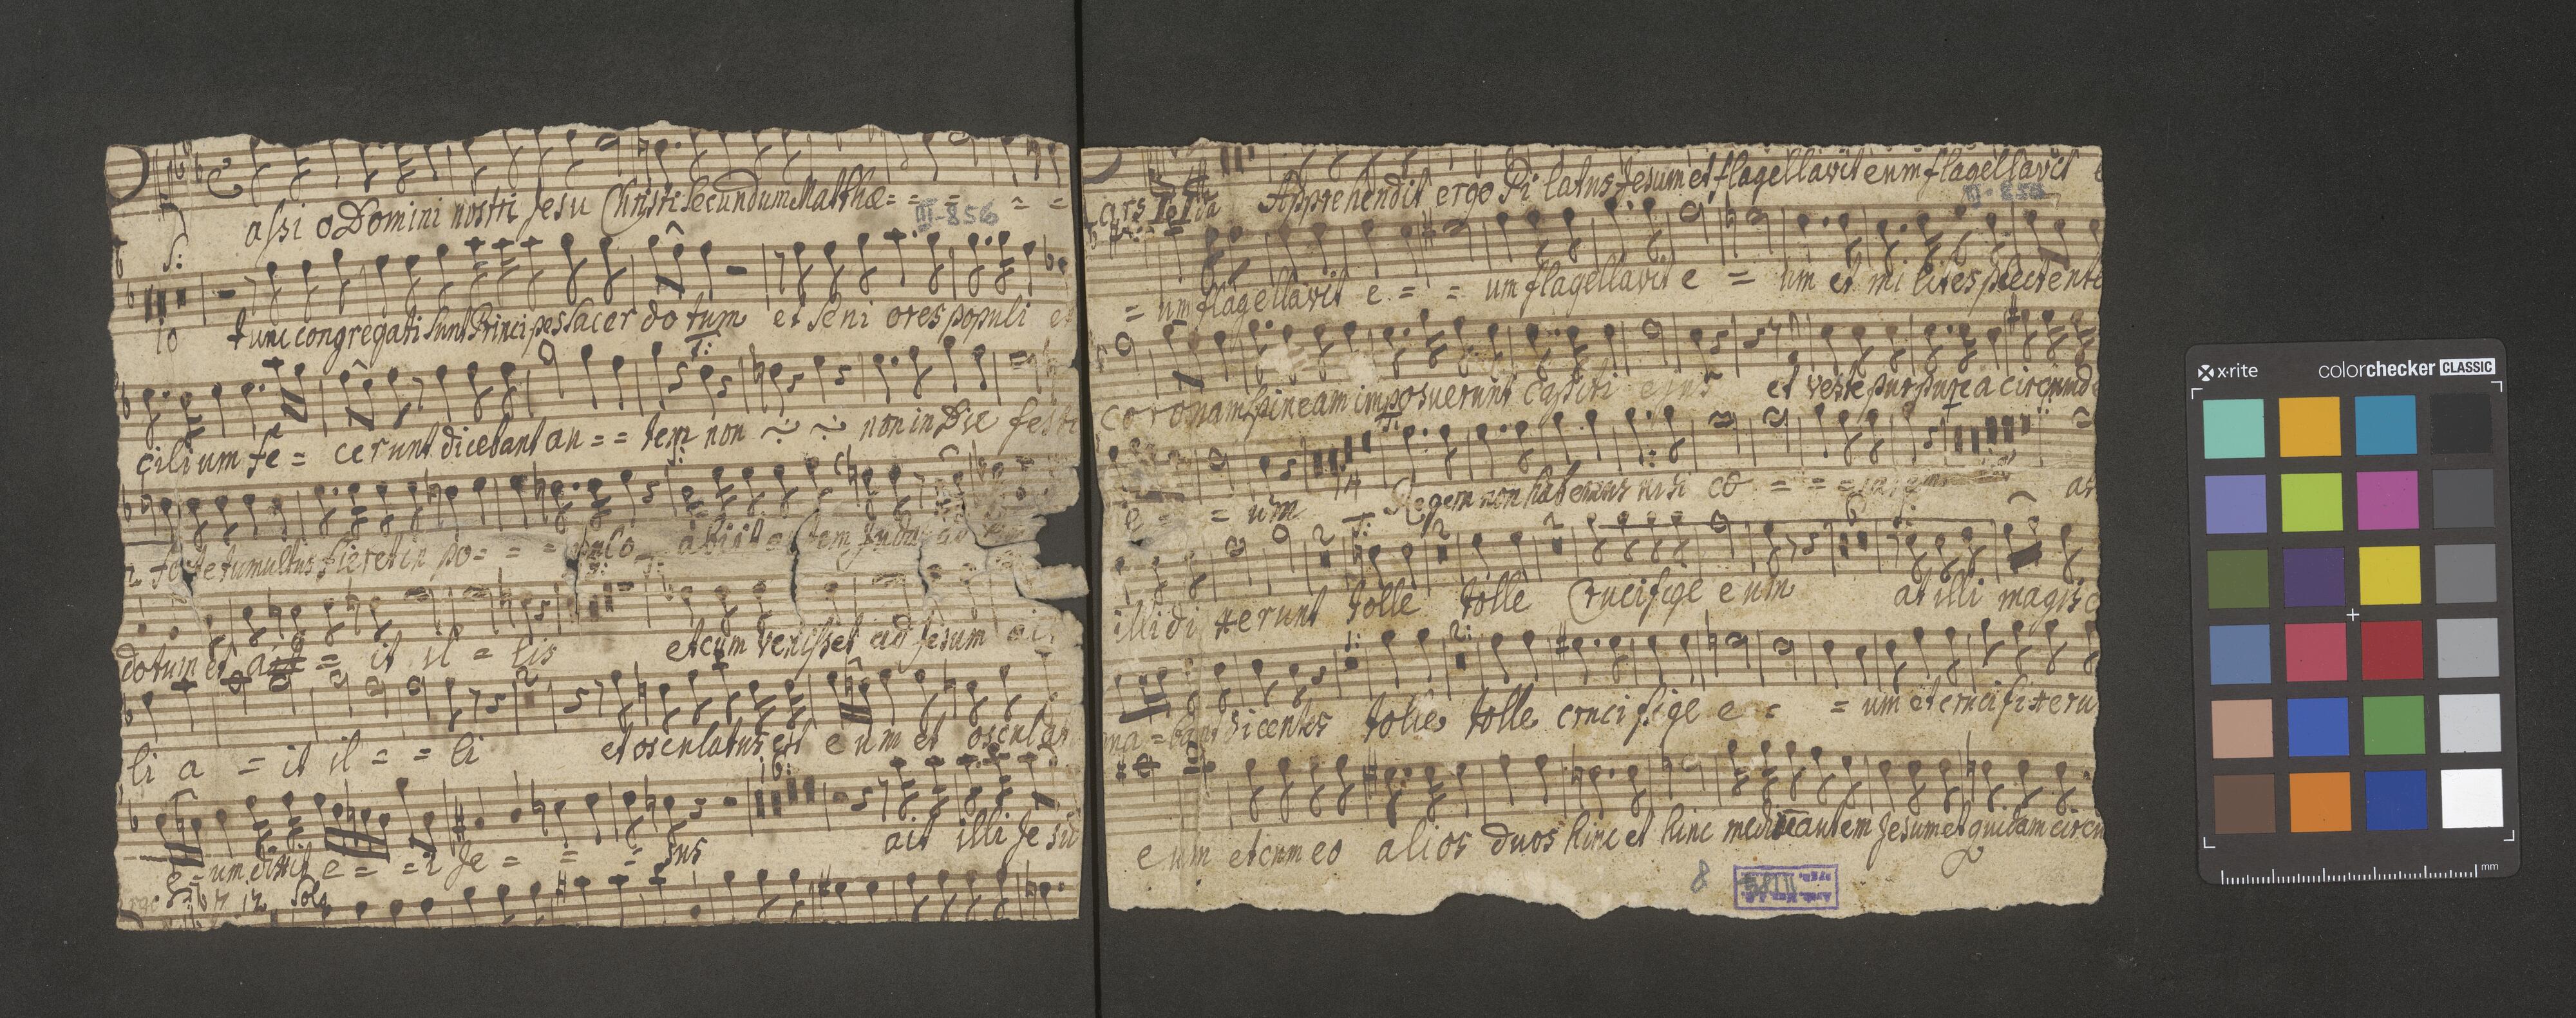 assi o Domini nostri Jesu Christi Secundum Matthæ= = = = =
III-856
S:
10 tunc congregati sunt Principes sacer do tum et seni ores populi et
T:
cilium fe = cerunt dicebant an = = tem non ~ ~ non in Die festi
S:
forte tumultus fieret in po= = = pulo abiit
S: T:
dotum et ait = it il = lis et cum venisset ad Jesum ai
2
li a = it il = = li et osculatus est e um et oscula
16:
e = um dixit e = = i Je = = = sus ait illi Je su
17 12 Solo
ars IIda Apprehendit ergo Pi latus Jesum et flagellavit eum flagellavit e
III-856
= um flagellavit e = = um flagellavit e = um et mi lites plectente
coronam spineam imposuerunt capiti ejus et veste purpurea circumde
T:
e = = um 14 Regem non habemus nisi co = = = at
2 T: 2 2 6 S:
illi di xerunt tolle tolle Crucifige e um at illi magis c
1: 2:
ma = bant dicentes tolle tolle crucifige e = = um et crucifixeru
e um et cum eo alios duos hinc et hinc medium autem Jesum et quidam circu
8
x-rite colorchecker CLASSIC
mm